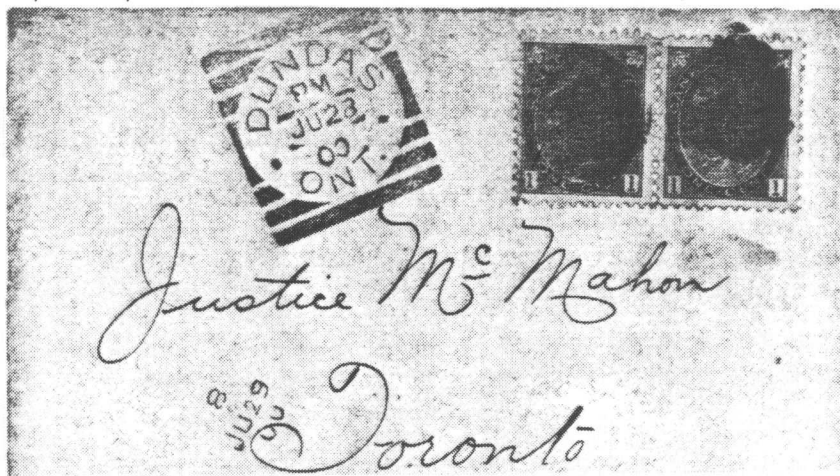 DUNDAS
PM
JU 28
00
ONT.
1 1 1 1
Justice Mc Mahon
8
JU 29
Toronto